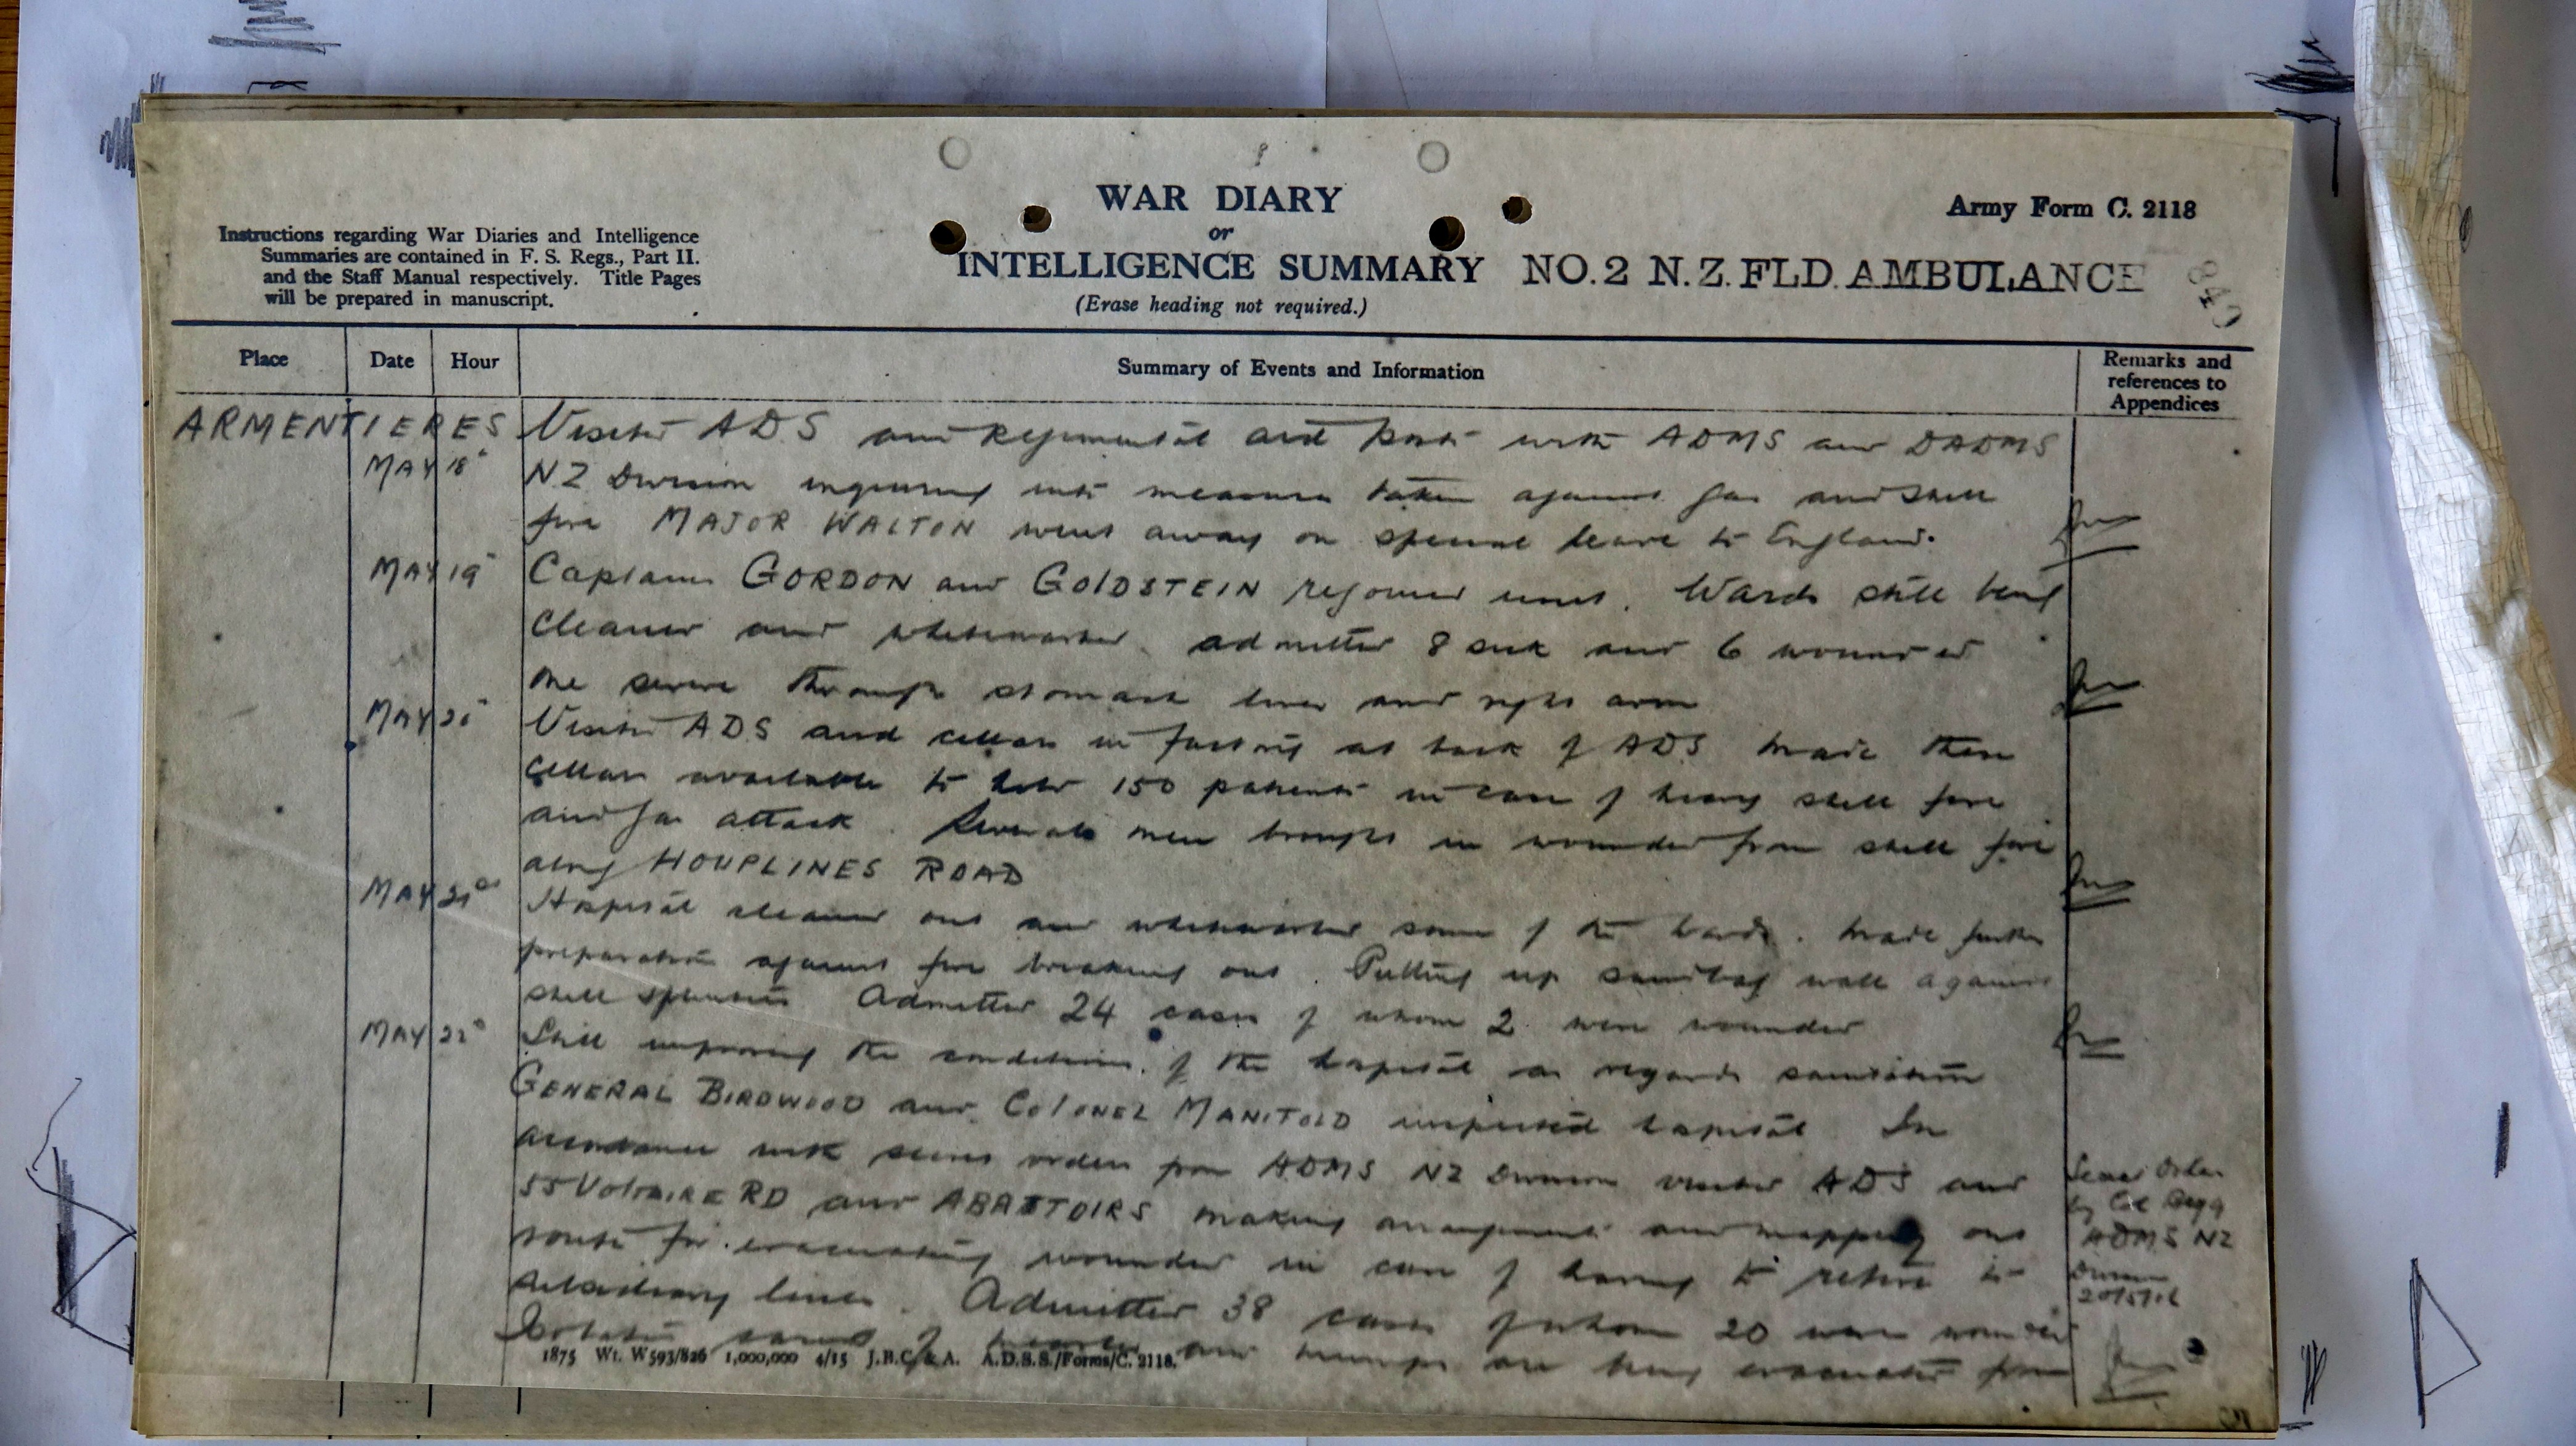 WAR DIARY
Army Form C. 2118
or
Instructions regarding War Diaries and Intelligence
Summaries are contained in F. S. Regs., Part II.
and the Staff Manual respectively. Title Pages
will be prepared in manuscript.
INTELLIGENCE SUMMARY NO. 2 N.Z. FLD. AMBULANCE
840
(Erase heading not required.)
Place Date Hour Summary of Events and Information Remarks and references to Appendices
ARMENTIERES Visited ADS and Regimental aid post with ADMS and DADMS
MAY 18 NZ Division inquiring into measures taken against gas and shell
fire MAJOR WALTON went away on special leave to England.
MAY 19 Captains GORDON and GOLDSTEIN rejoined unit. Wards still being
cleaned and whitewashed admitted 8 sick and 6 wounded
one severe through stomach liver and right arm
MAY 20 Visited ADS and cellars in factory at back of ADS made these
cellars available to hold 150 patients in case of heavy shell fire
and gas attack. Several men brought in wounded from shell fire
along HOUPLINES ROAD
MAY 21 Hospital cleaned out and whitewashed some of the wards. Made further
preparation against fire breaking out. Putting up sandbag wall against
shell splinters Admitted 24 cases of whom 2 were wounded
MAY 22 Still improving the conditions of the hospital as regards sanitation
GENERAL BIRDWOOD and COLONEL MANIFOLD inspected hospital In
accordance with secret orders from ADMS NZ Division visited ADS and
55 VOLTAIRE RD and ABATTOIRS making arrangements and mapping out
route for evacuating wounded in case of having to retire to
subsidiary lines. Admitted 38 cases of whom 20 were wounded
Secret Orders
by Col Begg
ADMS NZ
Division
20/5/16
Isolation cases of measles and mumps are being evacuated from
1875 Wt. W593/826 1,000,000 4/15 J.B.C. & A. A.D.S.S./Forms/C. 2118.